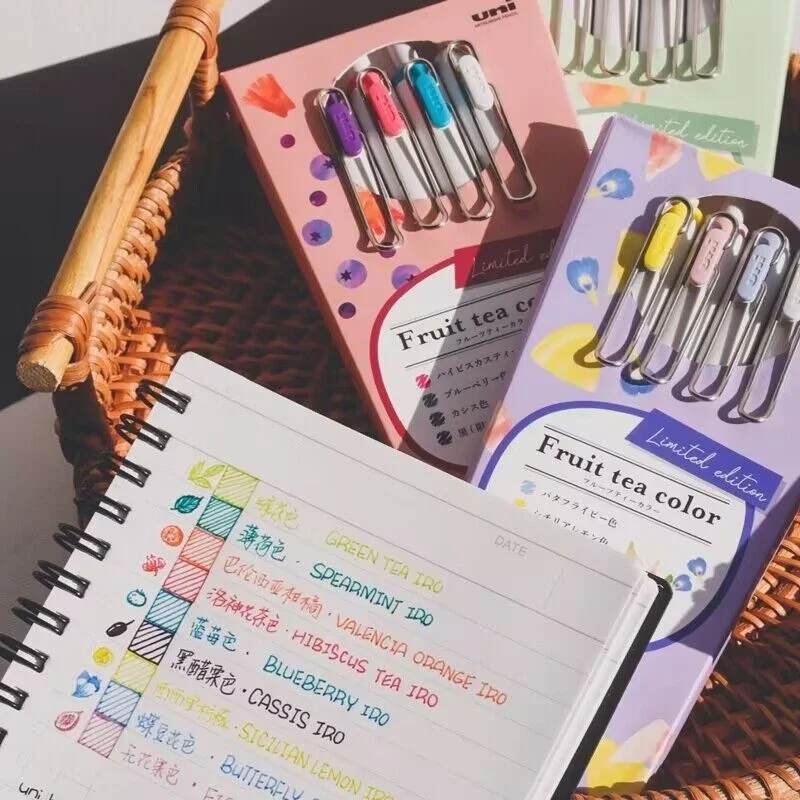 uni
MITSUBISHI PENCIL
Limited edition
Limited
Fruit tea co
フルーツティーカラー
ハイビスカスティー
ブルーベリー色
カシス色
黒
Limited edition
Fruit tea color
フルーツティーカラー
バタフライピー色
シチリアレモン色
DATE
GREEN TEA IRO
薄荷色 · SPEARMINT IRO
巴伦西亚柑橘 · VALENCIA ORANGE IRO
洛神花茶色 · HIBISCUS TEA IRO
蓝莓色 · BLUEBERRY IRO
黑醋栗色 · CASSIS IRO
· SICILIAN LEMON IRO
蝶豆花色 · BUTTERFLY
无花果色 · FIG
uni